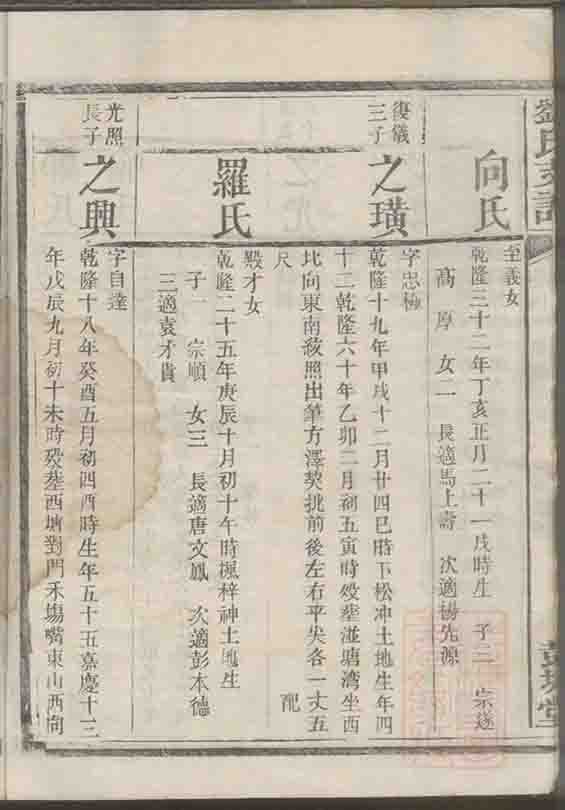 劉氏支譜
向氏
至義女
乾隆三十二年丁亥正月二十一戌時生 子二 宗遂
高厚 女二 長適馬上壽 次適楊先源
復儀
三子
之璜
字忠極
乾隆十九年甲戌十二月廿四巳時下松冲土地生年四
十二乾隆六十年乙卯二月初五寅時歿塟湴塘湾坐西
北向東南發照出筆方澤契批前後左右平矢各一丈五
尺 配
羅氏
殿才女
乾隆二十五年庚辰十月初十午時楓梓神土地生
子一 宗順 女三 長適唐文鳳 次適彭本德
三適袁才貴
光照
長子
之興
字自達
乾隆十八年癸酉五月初四酉時生年五十五嘉慶十三
年戊辰九月初十未時歿塟西塘對門禾塲嘴東山西向